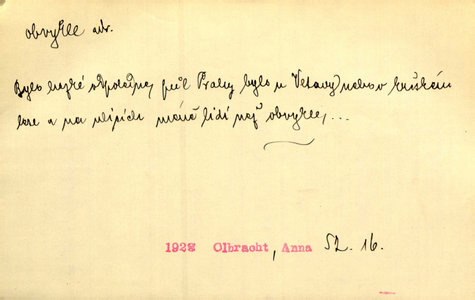 obvykle adv.
Bylo horké odpoledne, půl Prahy bylo u Vltavy nebo v krčském
lese a na ulicích méně lidí než obvykle, ...
1928 Olbracht, Anna SZ. 16.